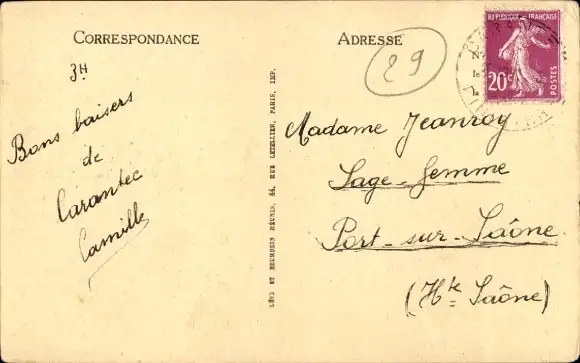 CORRESPONDANCE
3H
Bons baisers
de
Carantec
Camille
LÉVY ET NEURDEIN RÉUNIS, 44, RUE LETELLIER, PARIS, IMP.
ADRESSE
29
RÉPUBLIQUE FRANÇAISE
20c
POSTES
Madame Jeanroy
Sage-femme
Port-sur-Saône
(Hte Saône)